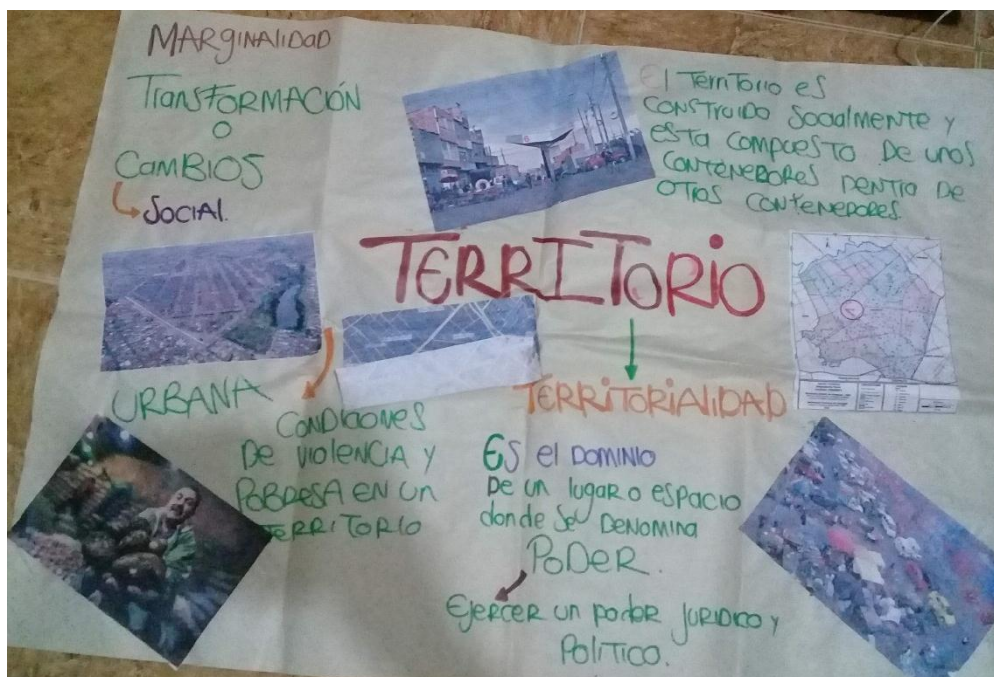 MARGINALIDAD
TRANSFORMACIÓN
O
CAMBIOS
SOCIAL.
El Territorio es
CONSTRUIDO Socialmente y
esta compuesto De unos
CONTENEDORES DENTRO DE
OTROS CONTENEDORES
TERRITORIO
URBANA
CONDICIONES
De violencia y
POBRESA EN UN
TERRITORIO
TERRITORIALIDAD
ES el DOMINIO
De un lugar o espacio
donde Se DENOMINA
PODER.
Ejercer un poder JURIDICO y
POLITICO.